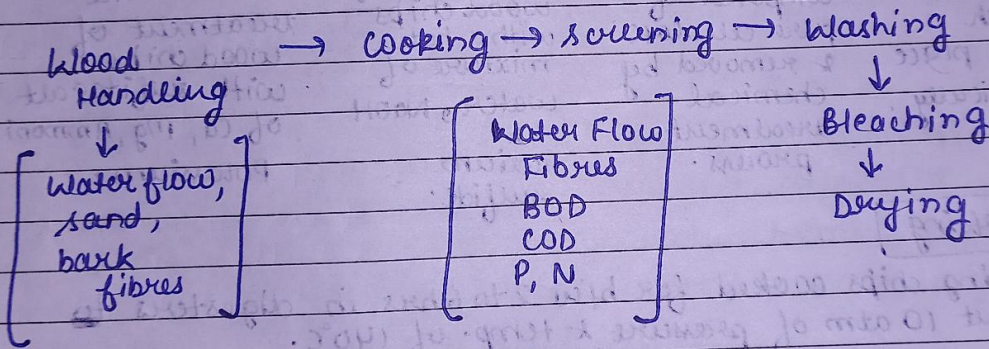 Wood Handling → cooking → screening → Washing
↓
Bleaching
↓
Drying
↓
[Water flow,
sand,
bark
fibres]
[Water Flow
Fibres
BOD
COD
P, N]